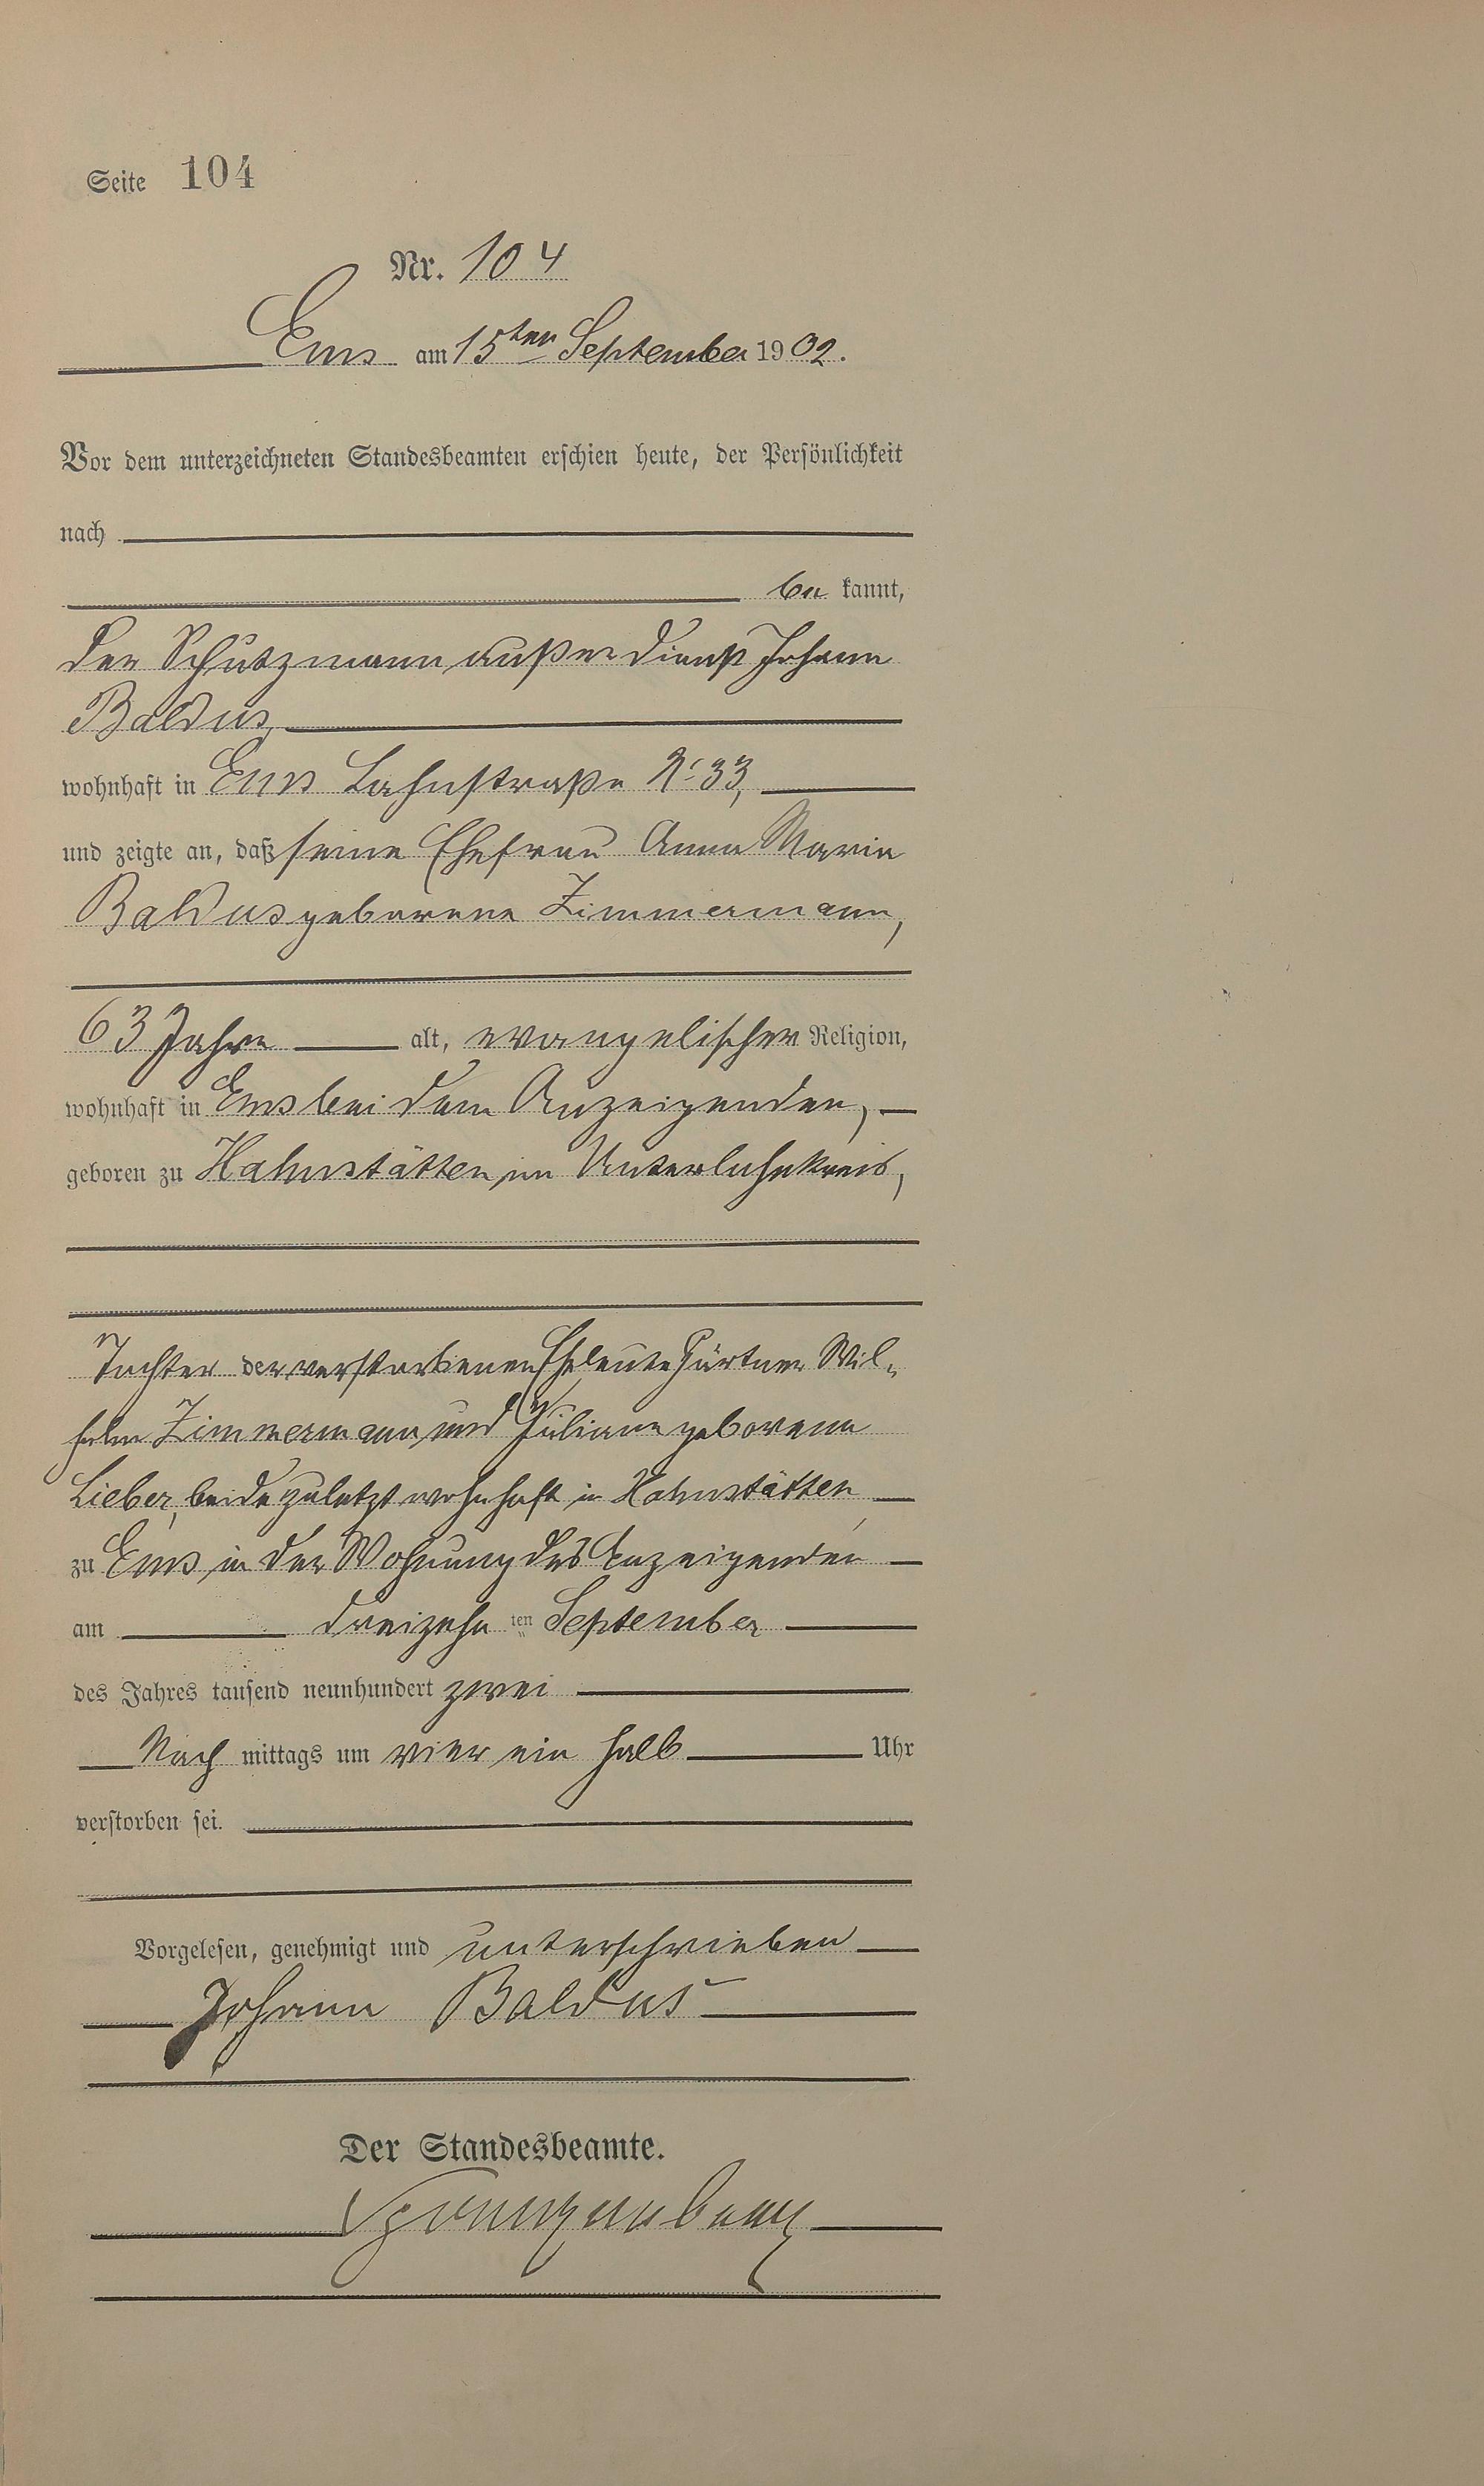 Seite 104
Nr. 104
Ems am 15ten September 1902.
Vor dem unterzeichneten Standesbeamten erschien heute, der Persönlichkeit
nach
be kannt,
der Schutzmann außer Dienst Johann
Baldus,
wohnhaft in Ems Lahnstraße No 33,
und zeigte an, daß seine Ehefrau Anna Maria
Baldus geborene Zimmermann,
63 Jahre alt, evangelischer Religion,
wohnhaft in Ems bei dem Anzeigenden,
geboren zu Hahnstätten im Unterlahnkreis,
Tochter der verstorbenen Eheleute Gärtner Wil-
helm Zimmermann und Juliane geborene
Lieber, beide zuletzt wohnhaft in Hahnstätten,
zu Ems in der Wohnung des Anzeigenden
am dreizehn ten September
des Jahres tausend neunhundert zwei
Nach mittags um vier ein halb Uhr
verstorben sei.
Vorgelesen, genehmigt und unterschrieben
Johann Baldus
Der Standesbeamte.